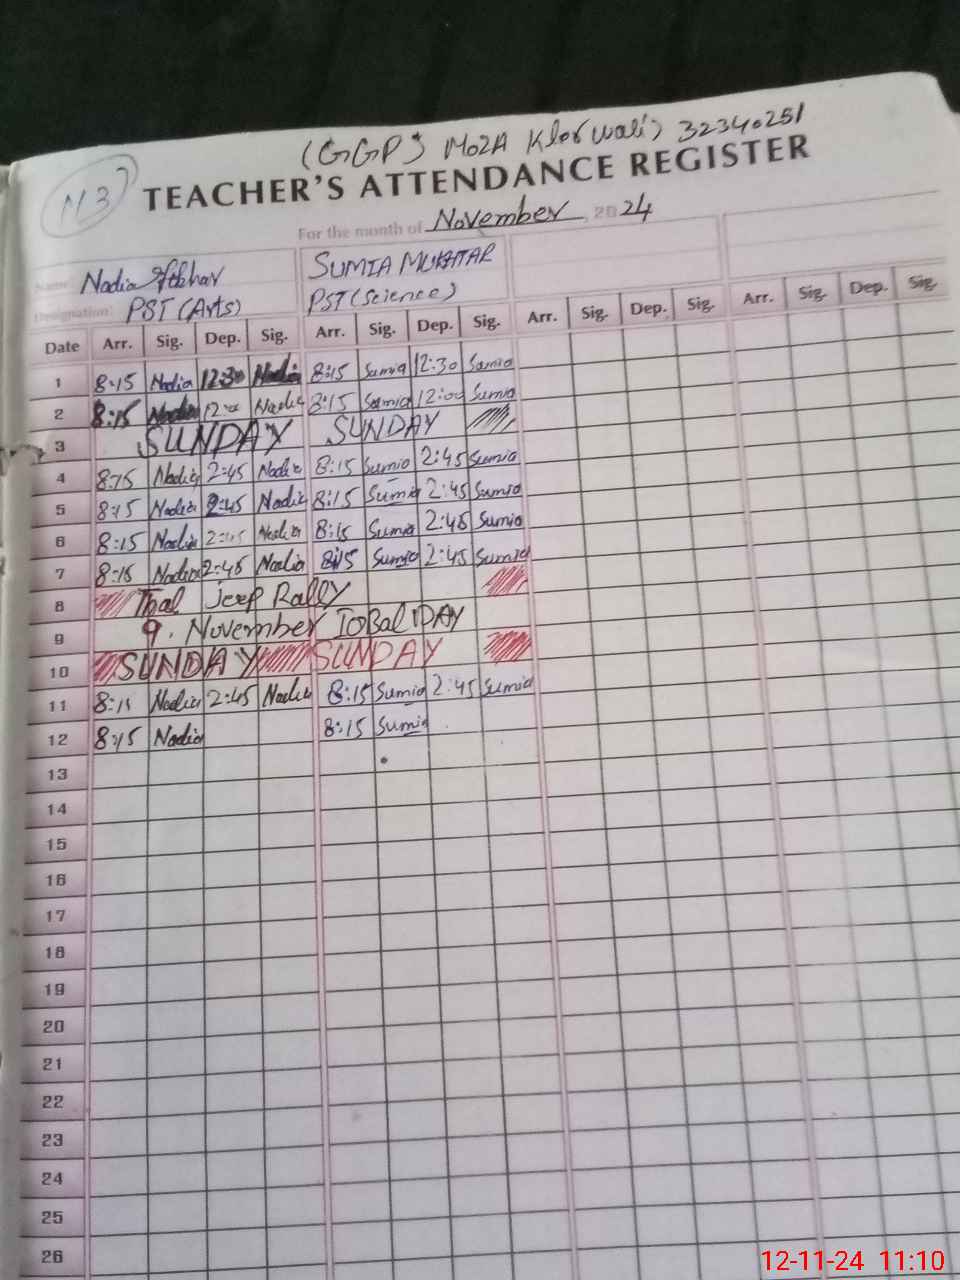 (GGPS MOZA Klor Wali) 32340251
113
TEACHER'S ATTENDANCE REGISTER
For the month of November, 2024
Name: Nadia SUMIA MUKHTAR
Designation: PST (Arts) PST (Science)
Date Arr. Sig. Dep. Sig. Arr. Sig. Dep. Sig. Arr. Sig. Dep. Sig. Arr. Sig. Dep. Sig.
1 8:15 Nadia 12:30 Nadia 8:15 Sumia 12:30 Sumia
2 8:15 Nadia 12:00 Nadia 8:15 Sumia 12:00 Sumia
3 SUNDAY SUNDAY
4 8:15 Nadia 2:45 Nadia 8:15 Sumia 2:45 Sumia
5 8:15 Nadia 2:45 Nadia 8:15 Sumia 2:45 Sumia
6 8:15 Nadia 2:45 Nadia 8:15 Sumia 2:45 Sumia
7 8:15 Nadia 2:45 Nadia 8:15 Sumia 2:45 Sumia
8 Thal Jeep Rally
9 9. November IQBal DAY
10 SUNDAY SUNDAY
11 8:15 Nadia 2:45 Nadia 8:15 Sumia 2:45 Sumia
12 8:15 Nadia 8:15 Sumia
13
14
15
16
17
18
19
20
21
22
23
24
25
26
12-11-24 11:10